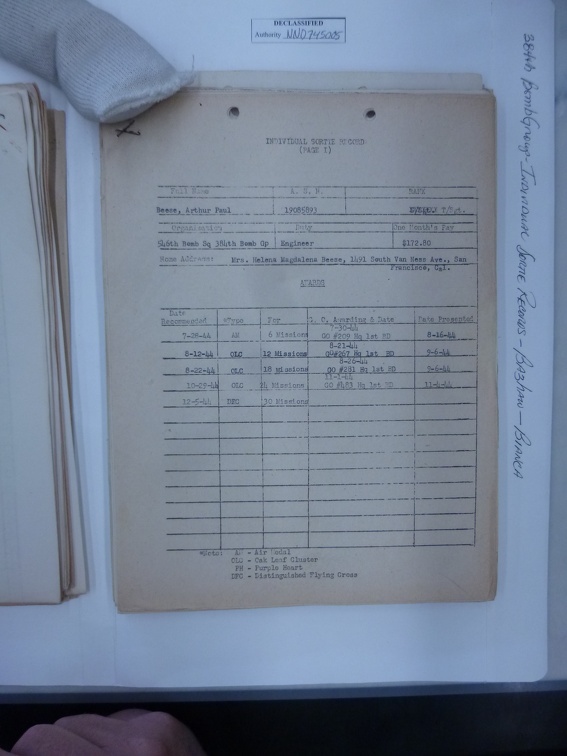 DECLASSIFIED
Authority NND745005
384th Bomb Group - Individual Sortie Records - Bazhaw - Bianca
INDIVIDUAL SORTIE RECORD
(PAGE 1)
Full Name A. S. N. RANK
Beese, Arthur Paul 19085893 T/Sgt.
Organization Duty One Month's Pay
546th Bomb Sq 384th Bomb Gp Engineer $172.80
Home Address: Mrs. Helena Magdalena Beese, 1491 South Van Ness Ave., San
Francisco, Cal.
AWARDS
Date
Recommended *Type For G. O. Awarding & Date Date Presented
7-30-44
7-28-44 AM 6 Missions GO #209 Hq 1st BD 8-16-44
8-21-44
8-12-44 OLC 12 Missions GO #267 Hq 1st BD 9-6-44
8-26-44
8-22-44 OLC 18 Missions GO #281 Hq 1st BD 9-6-44
11-1-44
10-29-44 OLC 24 Missions GO #483 Hq 1st BD 11-4-44
12-5-44 DFC 30 Missions
*Note: AM - Air Medal
OLC - Oak Leaf Cluster
PH - Purple Heart
DFC - Distinguished Flying Cross